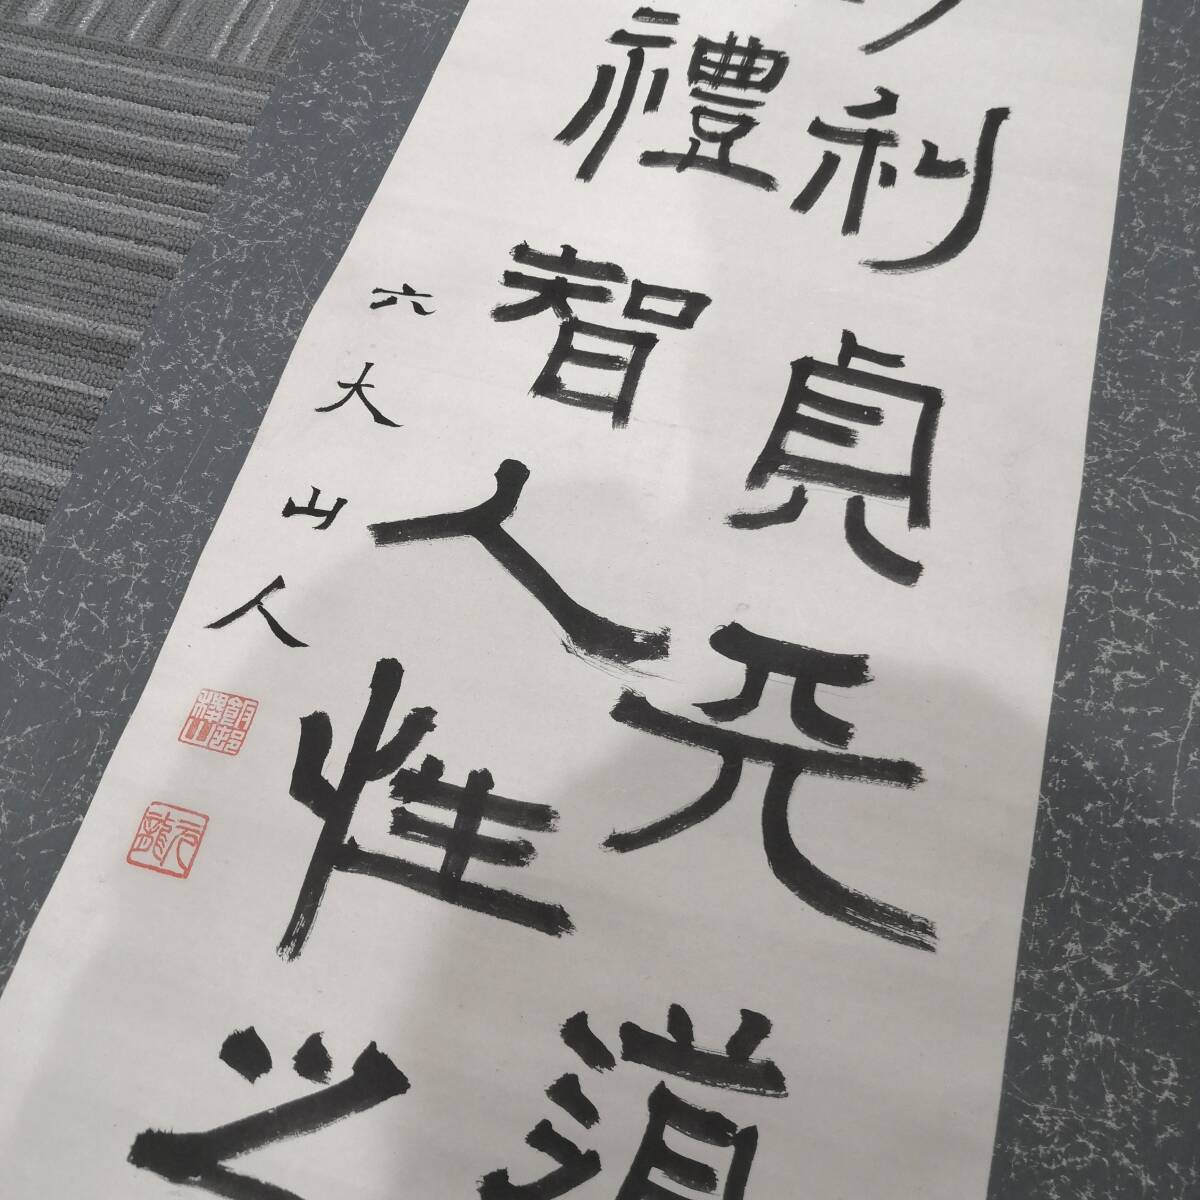 利貞天道
禮智人性之
六大山人